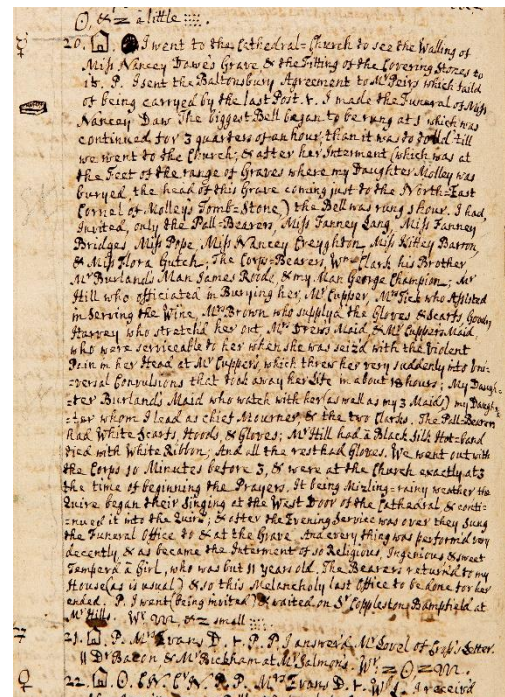 O, & Z a little ::::.
20. I went to the Cathedral=Church to see the Walling of
Miss Nancey Dawe's Grave & the Fitting of the Covering Stones to
it. P. I sent the Baltonsbury Agreement to Mr Peirs which faild
of being carryed by the last Post. I made the Funeral of Miss
Nancey Daw. The biggest Bell began to be rung at 1 which was
continued for 3 quarters of an hour, than it was to toll till
we went to the Church; & after her Interment (which was at
the Feet of the range of Graves where my Daughter Molley was
buryed, the head of this Grave coming just to the North=East
Cornel of Molleys Tomb=Stone) the Bell was rung 1 hour. I had
Invited, only the Pall=Bearers, Miss Fanney Lang, Miss Fanney
Bridges, Miss Pope, Miss Nancey Creyghton, Miss Kitley Barron,
& Miss Flora Gutch; The Corps=Bearers, Wm Clark, his Brother,
Mr Burlands Man James Roode, & my Man George Champion; Mr
Hill who officiated in Burying her, Mr Cupper, Mr Tick who Assisted
in Serving the Wine, Mrs Brown who supplyd the Gloves & Scarfs, Goody
Harvey who stretchd her out, Mrs Drews Maid, & Mr Cuppers Maid,
who were serviceable to her when she was seizd with the Violent
Pain in her Head at Mr Cuppers, which threw her very suddenly into Uni=
=versal Convulsions that took away her Life in about 18 hours; My Daugh=
=ter Burlands Maid who watch with her as well as my 3 Maids) my Daugh=
=ter whom I lead as chief Mourner, & the two Clarks. The Pall=Bearers
had White Scarfs, Hoods, & Gloves; Mr Hill had a Black Silk Hat=band
tied with White Ribbon; And all the rest had Gloves. We went out with
the Corps 10 Minutes before 3, & were at the Church exactly at 3
the time of beginning the Prayers. It being Mizling=rainy weather the
Quire began their Singing at the West Door of the Cathedral, & conti=
=nued it into the Quire; & after the Evening Service was over they Sung
the Funeral Office to & at the Grave. And every thing was performd very
decently, & as became the Interment of so Religious, Ingenious & sweet
Temperd a Girl, who was but 11 years old. The Bearers returnd to my
House (as is usual) & so this Melancholy last Office to be done for her
ended. P. I went (being invited) & waited on Sr Copplestons Bampfield at
Mr Hills. W. & Z small ::::.
21. P. Mrs Evans D. P. P. I answerd Mr Lovel of Letter.
|| Dr Bacon & Mr Bickham at Mr Salmons.
22. O. P. Mrs Evans D. I receivd